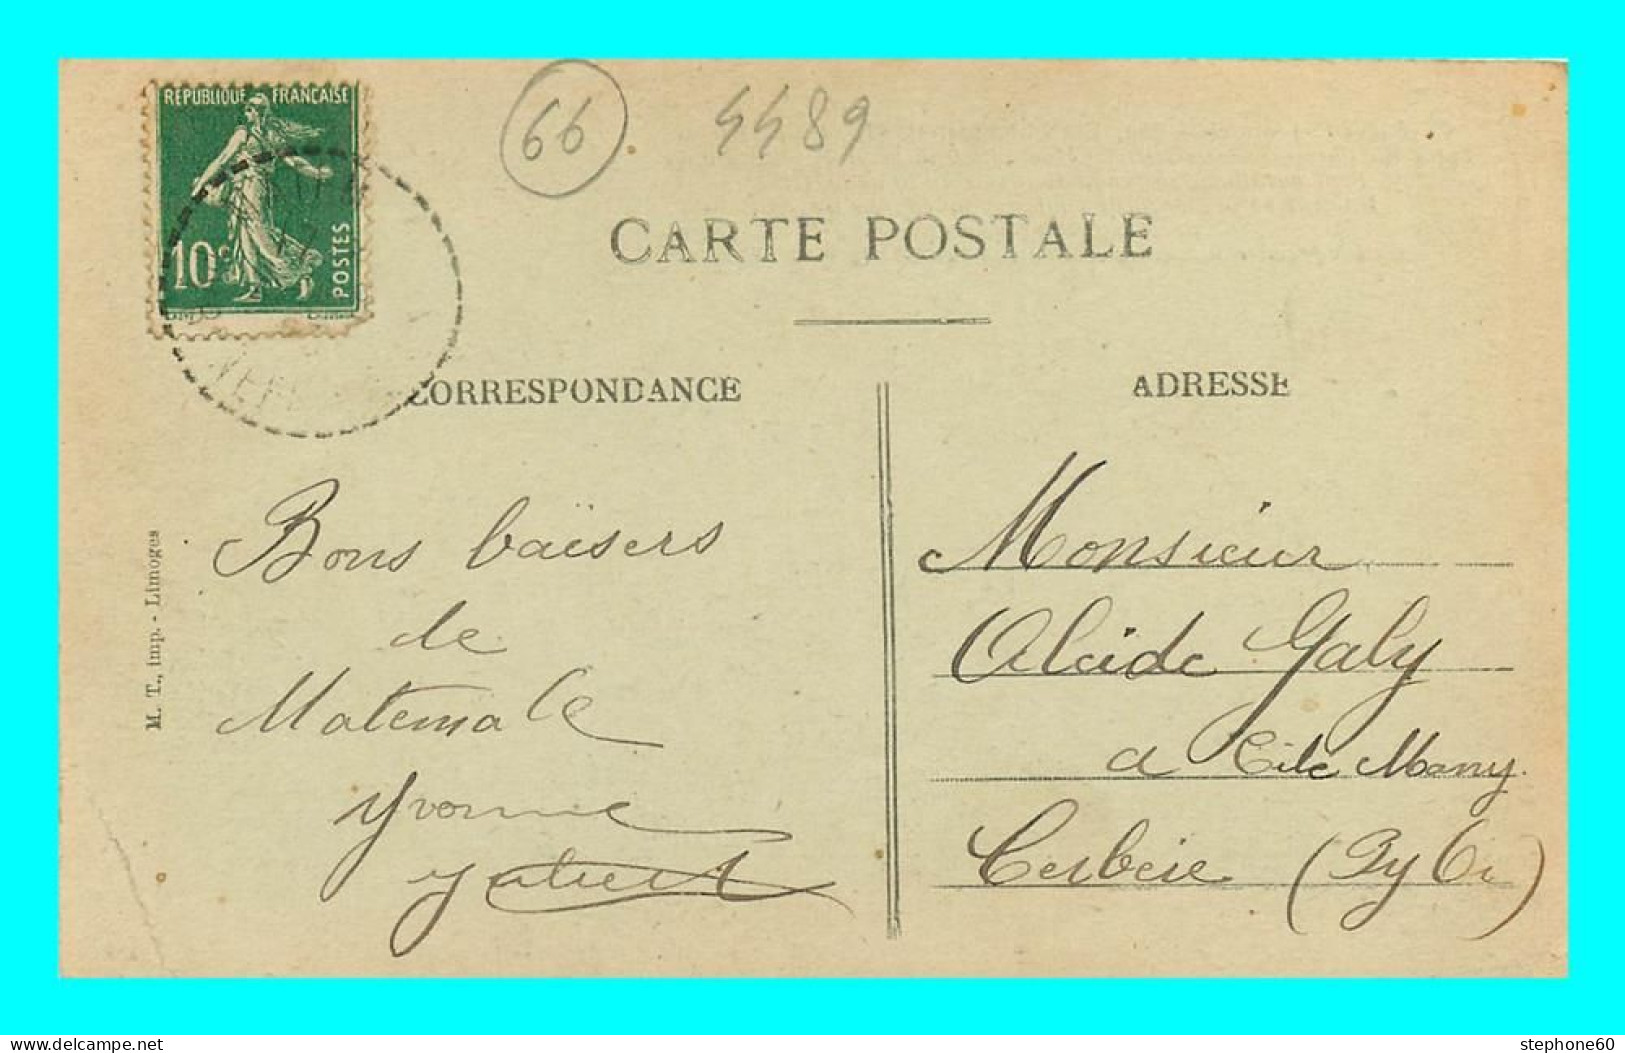 REPUBLIQUE FRANCAISE
10c
POSTES
66
4489
CARTE POSTALE
CORRESPONDANCE
ADRESSE
M. T., imp. - Limoges
Bons baïsers
de
Matemale
Yvonne
Monsieur
Alcide Galy
a Cité Many
Cerbère (Py Or)
stephone60